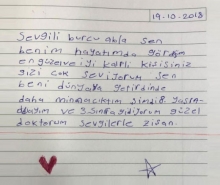 19-10-2018
Sevgili burcu abla sen
benim hayatımda gördüğüm
en güzel ve iyi kalpli kişisiniz
sizi çok seviyorum sen
beni dünyaya getirdinde
daha minnacıktım şimdi 8 yaşın
dayım ve 3. sınıfa gidiyorum güzel
doktorum sevgilerle Zişan.